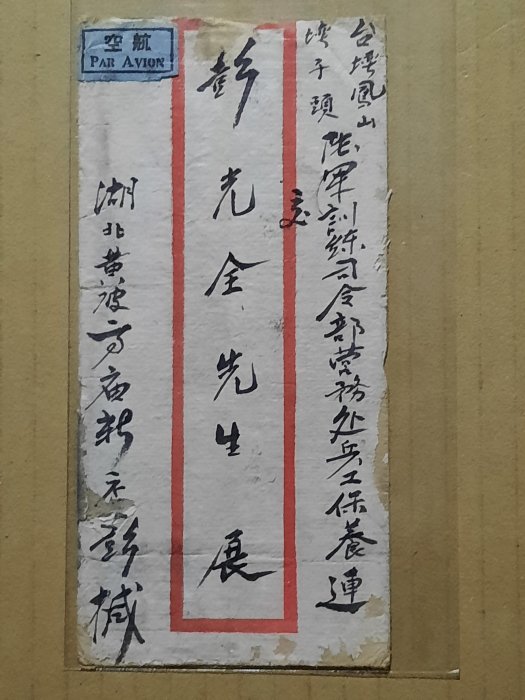 空航
PAR AVION
台灣鳳山
埤子頭
陸軍訓練司令部營務处兵工保養連
交
彭光全先生 展
湖北黃陂方庙彭械